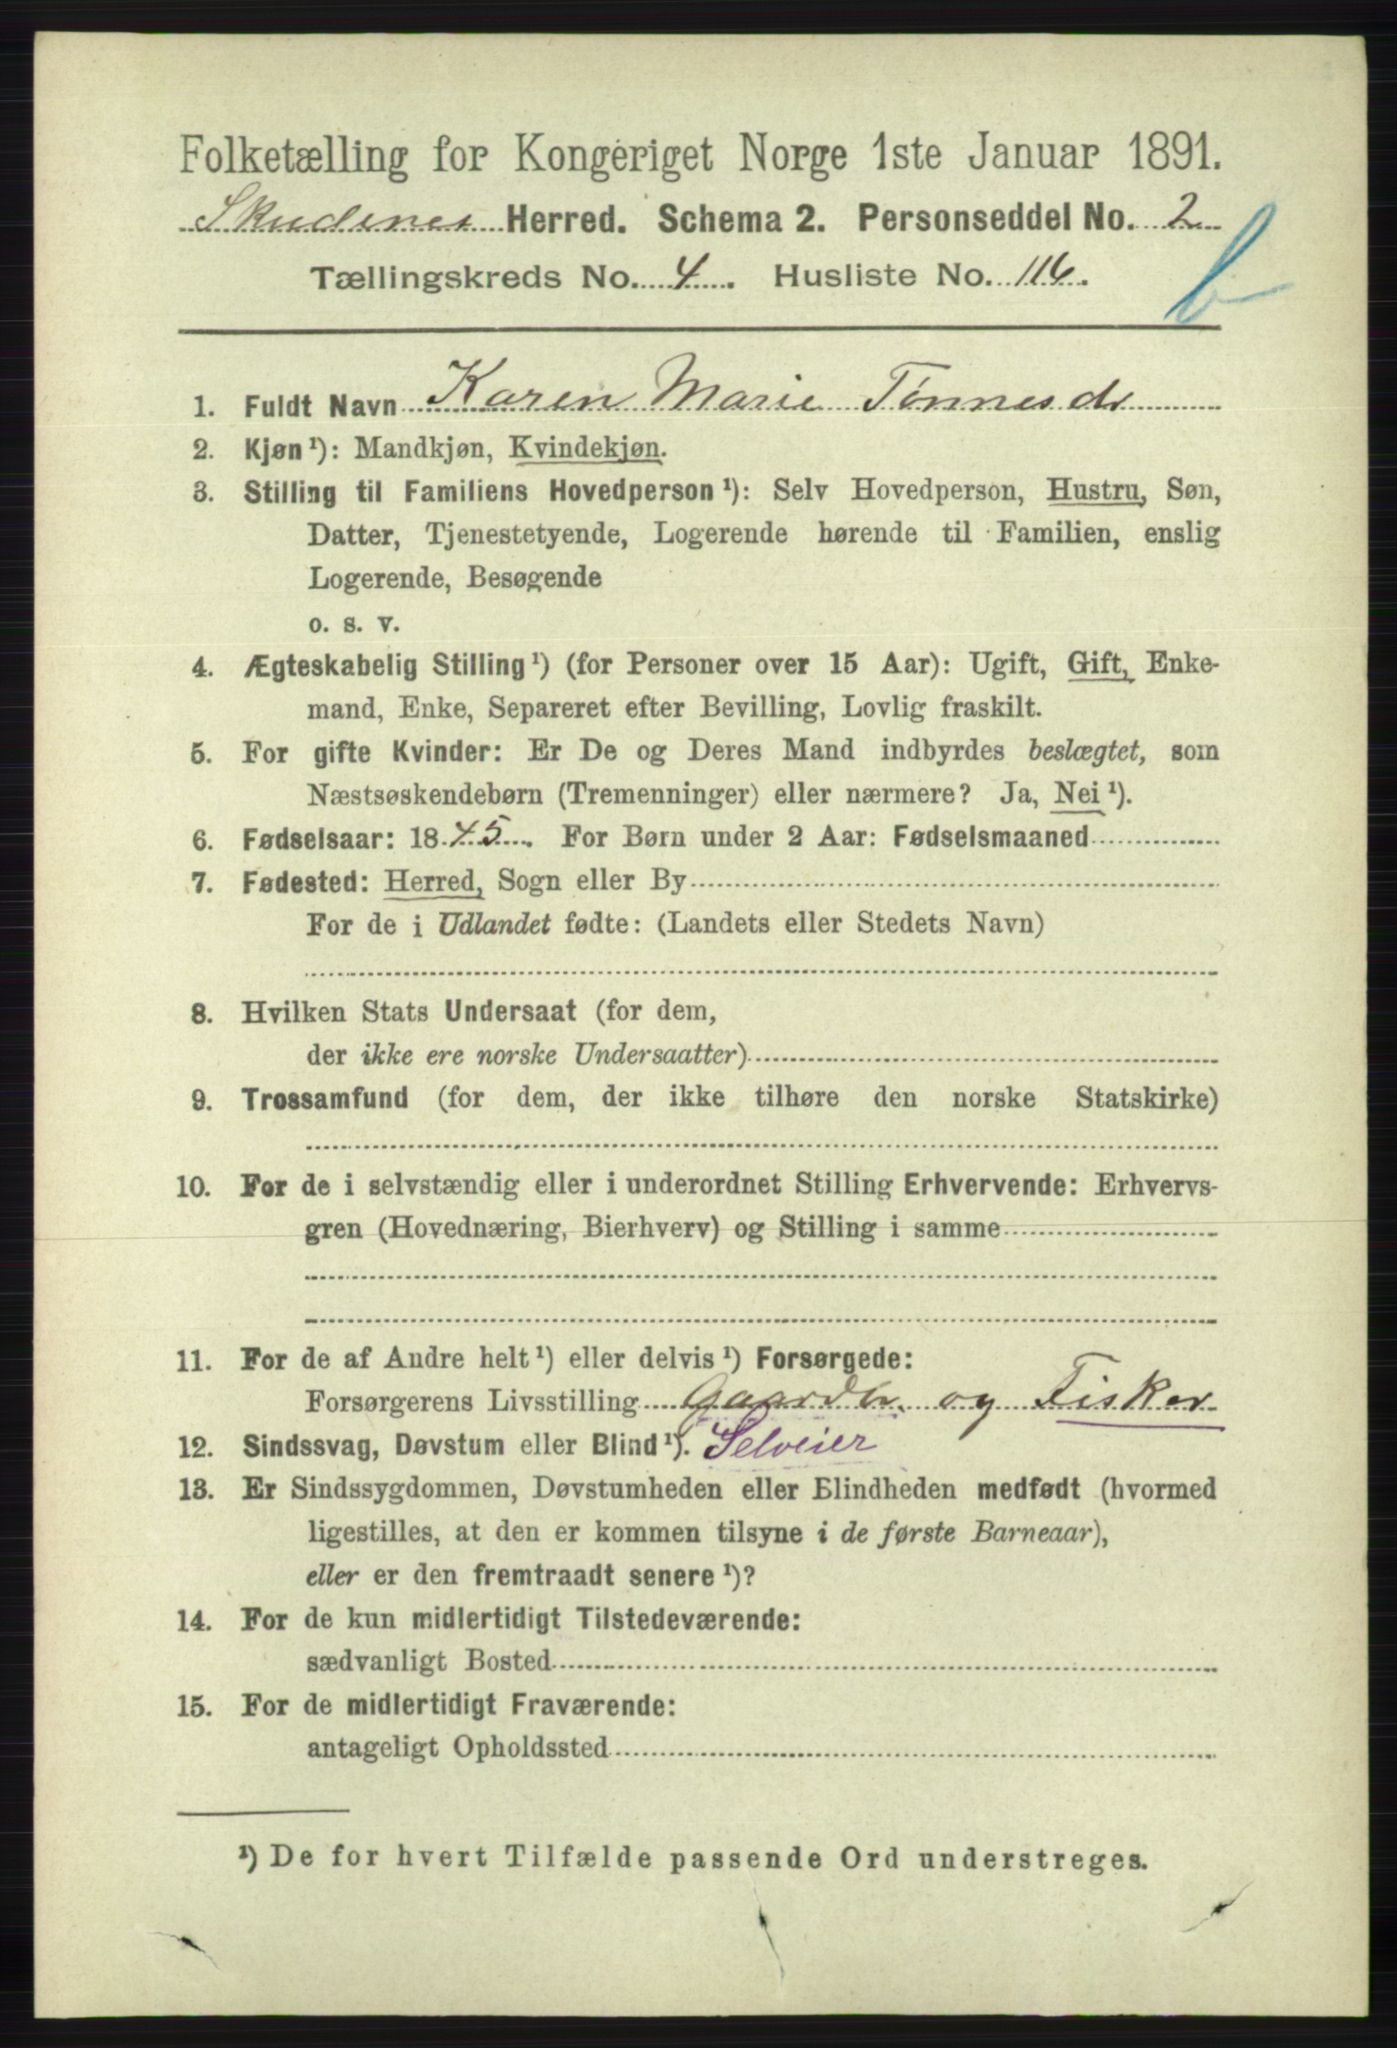 Folketælling for Kongeriget Norge 1ste Januar 1891.
Skudenes Herred. Schema 2. Personseddel No. 2
Tællingskreds No. 4. Husliste No. 116.
b
1. Fuldt Navn Karen Marie Tønnesdr
2. Kjøn¹): Mandkjøn, Kvindekjøn.
3. Stilling til Familiens Hovedperson¹): Selv Hovedperson, Hustru, Søn,
Datter, Tjenestetyende, Logerende hørende til Familien, enslig
Logerende, Besøgende
o. s. v.
4. Ægteskabelig Stilling¹) (for Personer over 15 Aar): Ugift, Gift, Enke-
mand, Enke, Separeret efter Bevilling, Lovlig fraskilt.
5. For gifte Kvinder: Er De og Deres Mand indbyrdes beslægtet, som
Næstsøskendebørn (Tremenninger) eller nærmere? Ja, Nei¹).
6. Fødselsaar: 1845. For Børn under 2 Aar: Fødselsmaaned
7. Fødested: Herred, Sogn eller By
For de i Udlandet fødte: (Landets eller Stedets Navn)
8. Hvilken Stats Undersaat (for dem,
der ikke ere norske Undersaatter)
9. Trossamfund (for dem, der ikke tilhøre den norske Statskirke)
10. For de i selvstændig eller i underordnet Stilling Erhvervende: Erhvervs-
gren (Hovednæring, Bierhverv) og Stilling i samme
11. For de af Andre helt¹) eller delvis¹) Forsørgede:
Forsørgerens Livsstilling Gaardbr. og Fisker
12. Sindssvag, Døvstum eller Blind¹). Selveier
13. Er Sindssygdommen, Døvstumheden eller Blindheden medfødt (hvormed
ligestilles, at den er kommen tilsyne i de første Barneaar),
eller er den fremtraadt senere¹)?
14. For de kun midlertidigt Tilstedeværende:
sædvanligt Bosted
15. For de midlertidigt Fraværende:
antageligt Opholdssted
¹) De for hvert Tilfælde passende Ord understreges.